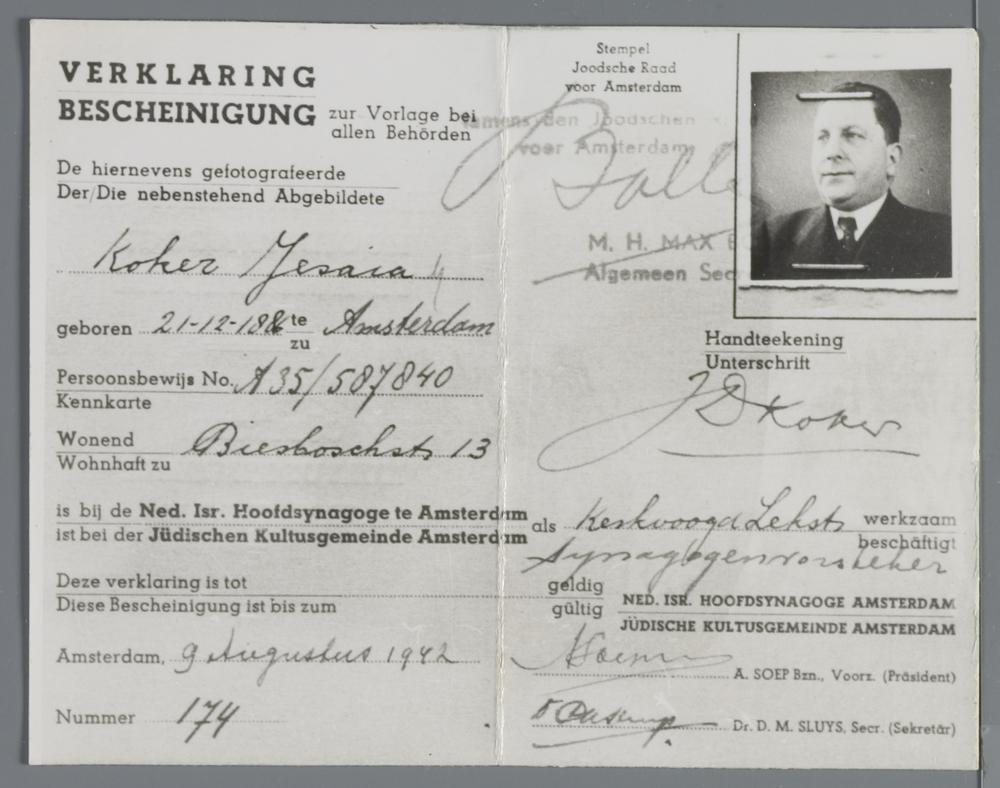 VERKLARING
BESCHEINIGUNG zur Vorlage bei
allen Behörden
De hiernevens gefotografeerde
Der/Die nebenstehend Abgebildete
Koker Jesaia
geboren 21-12-1886 te Amsterdam
zu
Persoonsbewijs No. A35/587840
Kennkarte
Wonend Biesboschstr 13
Wohnhaft zu
is bij de Ned. Isr. Hoofdsynagoge te Amsterdam
ist bei der Jüdischen Kultusgemeinde Amsterdam
Deze verklaring is tot
Diese Bescheinigung ist bis zum
Amsterdam, 9 Augustus 1942
Nummer 174
Stempel
Joodsche Raad
voor Amsterdam
Namens den Joodschen
voor Amsterdam,
M. H. MAX
Algemeen Sec
Handteekening
Unterschrift
JDKoker
als werkzaam
Synagogenvorsteher beschäftigt
geldig
gültig
NED. ISR. HOOFDSYNAGOGE AMSTERDAM
JÜDISCHE KULTUSGEMEINDE AMSTERDAM
A. SOEP Bzn., Voorz. (Präsident)
Dr. D. M. SLUYS, Secr. (Sekretär)